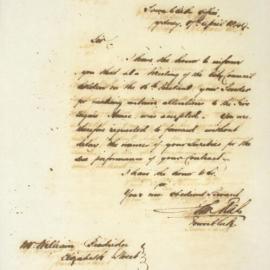 Town Clerks Office
Sydney, 17 April 1844
Sir
I have the honor to inform
you that at a Meeting of the City Council
holden on the 15th Instant your Tender
for making certain alterations to the Fire
Engine House was accepted. You are
therefore requested to forward without
delay the names of your Sureties for the
due performance of your Contract.
I have the honor to be
Your most obedient Servant
Town Clerk
Mr William
Elizabeth Street